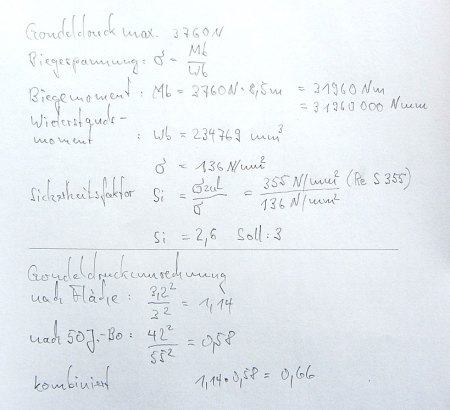 Gondeldruck max. 3760N
Biegespannung: σ = Mb / Wb
Biegemoment: Mb = 3760N · 8,5m = 31960 Nm
= 31960 000 Nmm
Widerstands-
moment : Wb = 234769 mm³
σ = 136 N/mm²
Sicherheitsfaktor Si = σzul / σ = 355 N/mm² / 136 N/mm² (Re S355)
Si = 2,6 Soll: 3
Gondeldruckumrechnung
nach Fläche: 3,2² / 3² = 1,14
nach 50J.-Bö: 42² / 55² = 0,58
kombiniert 1,14 · 0,58 = 0,66